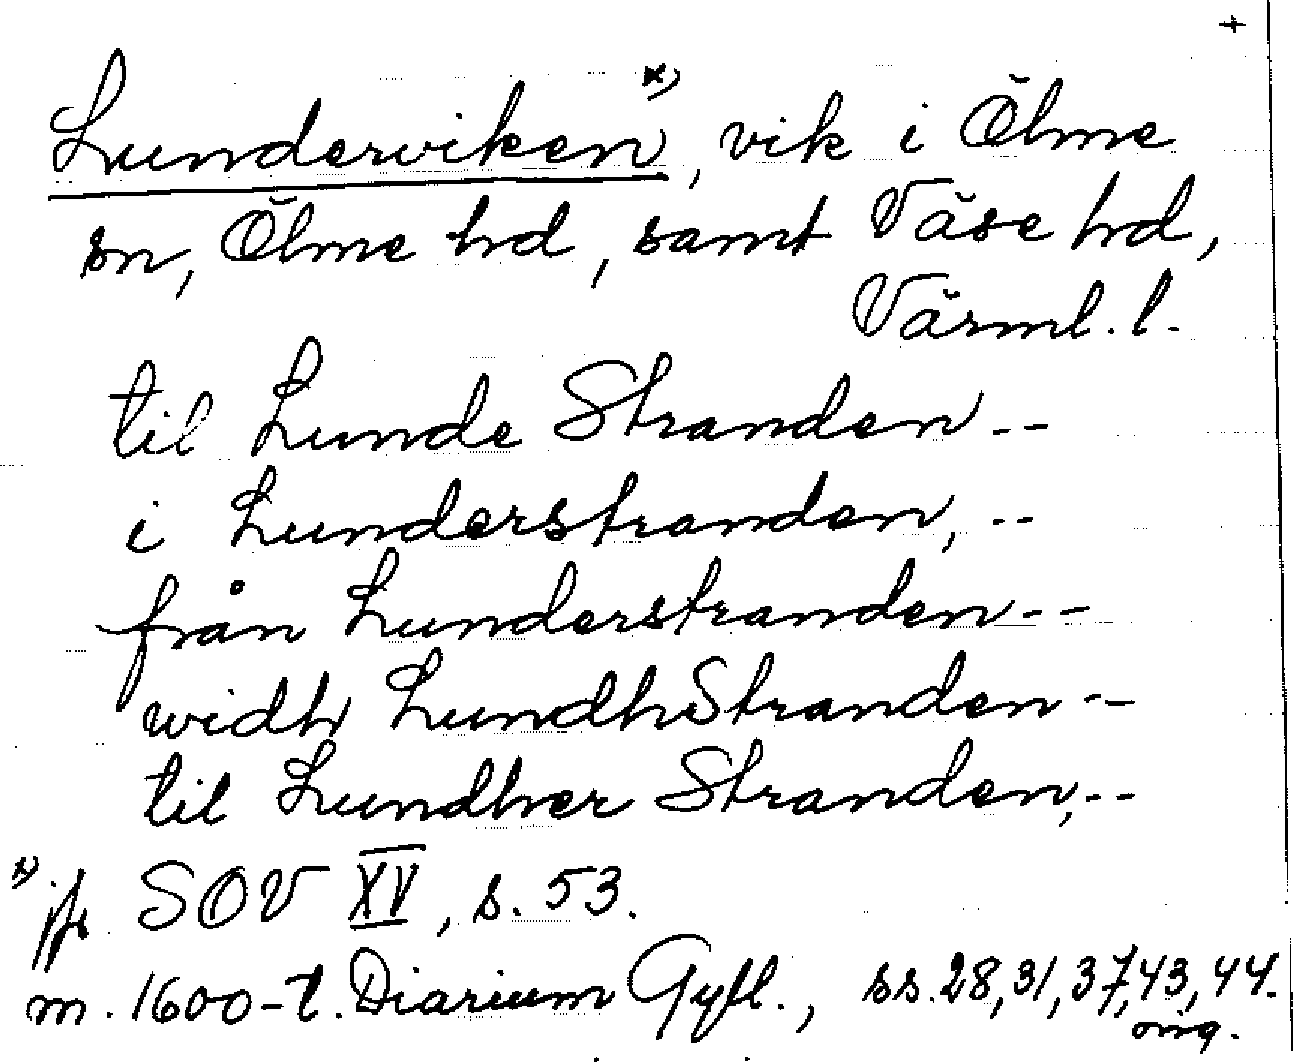 +
Lunderviken*), vik i Ölme
sn, Ölme hd, samt Väse hd,
Värml. l.
til Lunde Stranden --
i Lunderstranden, --
från Lunderstranden --
widh LundhStranden --
til Lundher Stranden, --
*) jfr SOV XV, s. 53.
m. 1600-t. Diarium Gyll., ss. 28, 31, 37, 43, 44.
orig.